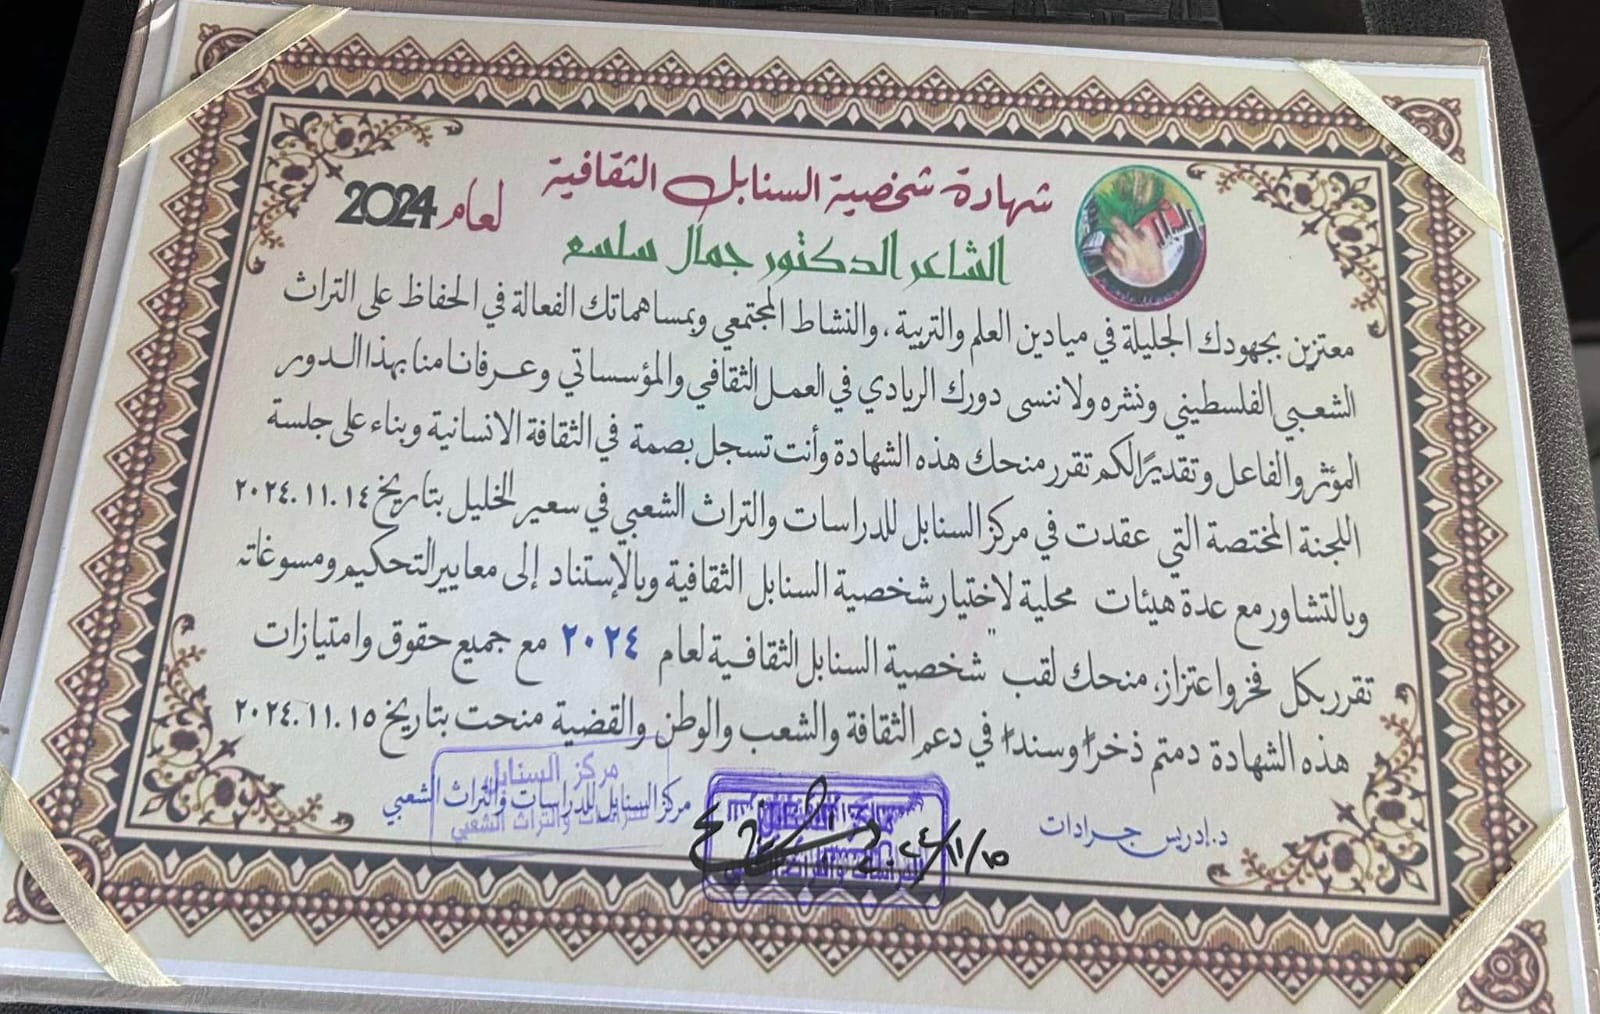 شهادة شخصية السنابل الثقافية لعام 2024
الشاعر الدكتور جمال سلسع
معتزين بجهودك الجليلة في ميادين العلم والتربية، والنشاط المجتمعي وبمساهماتك الفعالة في الحفاظ على التراث
الشعبي الفلسطيني ونشره ولا ننسى دورك الريادي في العمل الثقافي والمؤسساتي وعرفانا منا بهذا الدور
المؤثر والفاعل وتقديرًا لكم تقرر منحك هذه الشهادة وأنت تسجل بصمة في الثقافة الانسانية وبناء على جلسة
اللجنة المختصة التي عقدت في مركز السنابل للدراسات والتراث الشعبي في سعير الخليل بتاريخ ٢٠٢٤.١١.١٤
وبالتشاور مع عدة هيئات محلية لاختيار شخصية السنابل الثقافية وبالإستناد إلى معايير التحكيم ومسوغاته
تقرر بكل فخر واعتزاز، منحك لقب "شخصية السنابل الثقافية لعام ٢٠٢٤ مع جميع حقوق وامتيازات
هذه الشهادة دمتم ذخرًا وسندًا في دعم الثقافة والشعب والوطن والقضية منحت بتاريخ ٢٠٢٤.١١.١٥
د.إدريس جرادات
٢٤/١١/١٥
مركز السنابل للدراسات والتراث الشعبي
مركز السنابل
للدراسات والتراث الشعبي